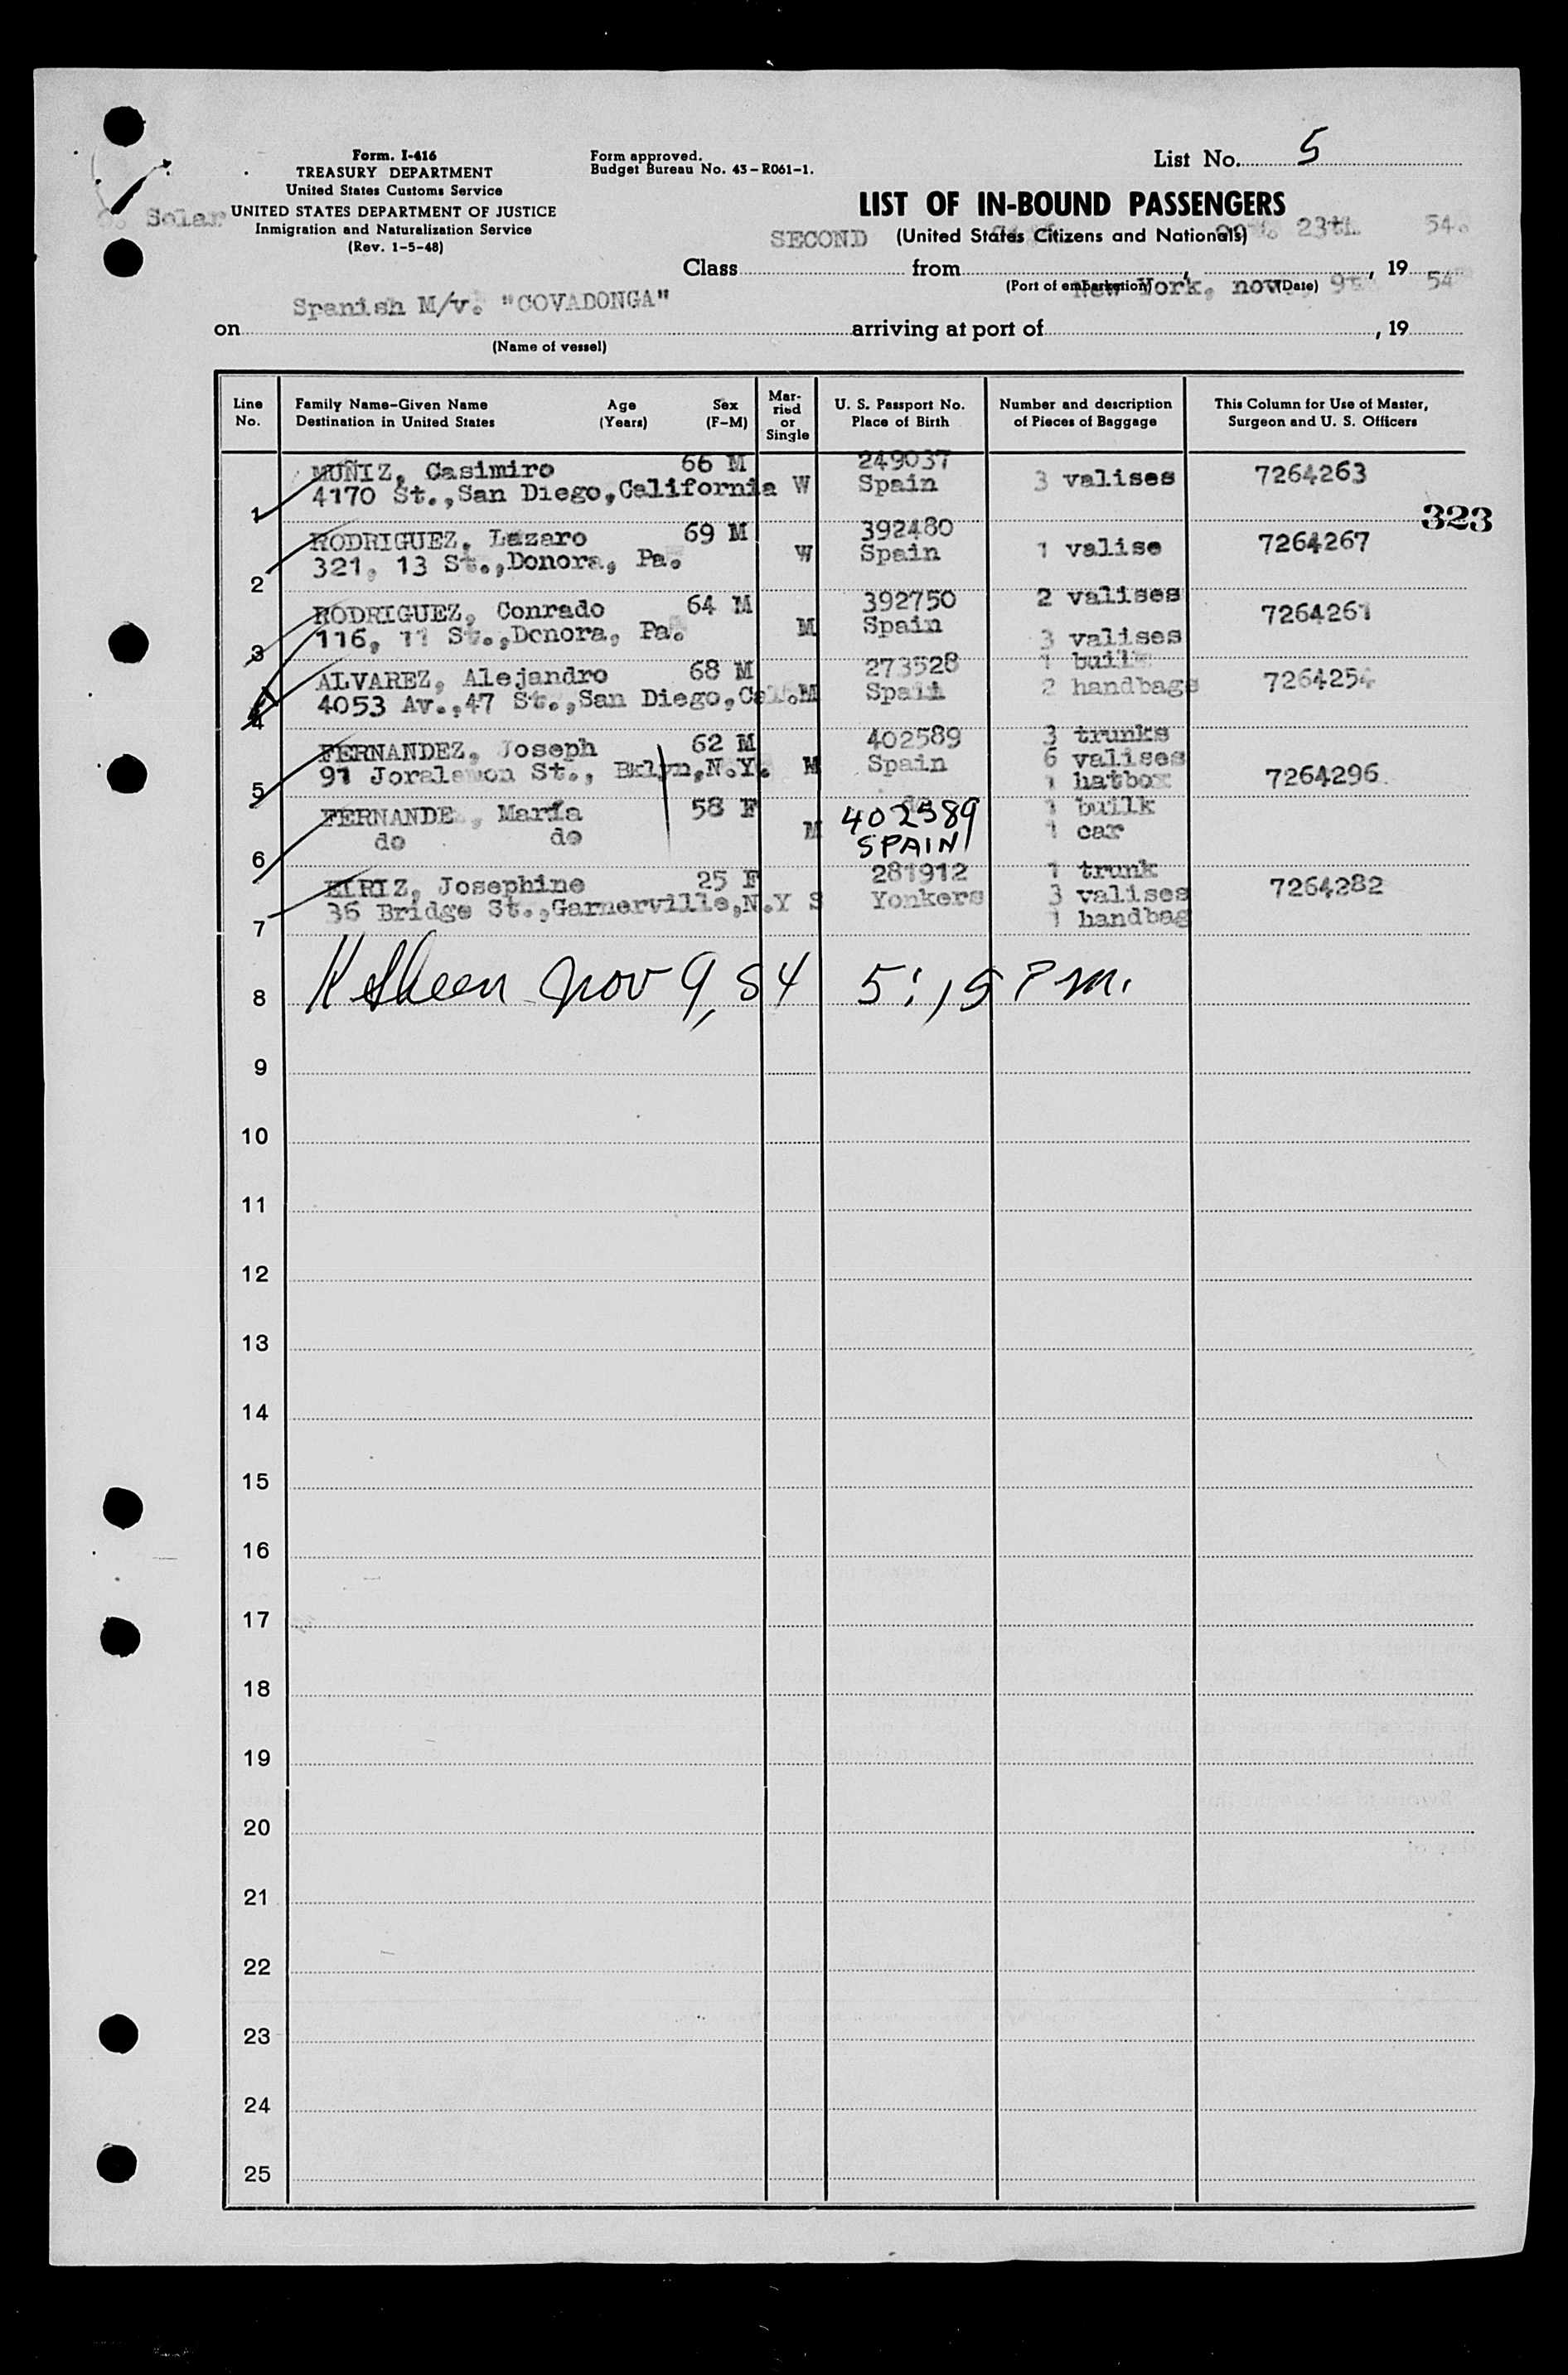 Form. I-416
TREASURY DEPARTMENT
United States Customs Service
UNITED STATES DEPARTMENT OF JUSTICE
Inmigration and Naturalization Service
(Rev. 1-5-48)
Solar
Form approved.
Budget Bureau No. 43-R061-1.
List No. 5
LIST OF IN-BOUND PASSENGERS
(United States Citizens and Nationals)
Class SECOND from 23th. , 19 54.
(Port of embarketion) (Date)
on Spanish M/v. "COVADONGA" arriving at port of New York, nov. 9th , 19 54
(Name of vessel)
Line No. Family Name-Given Name Destination in United States Age (Years) Sex (F-M) Married or Single U. S. Passport No. Place of Birth Number and description of Pieces of Baggage This Column for Use of Master, Surgeon and U. S. Officers
1 MUÑIZ, Casimiro 66 M 249037
4170 St.,San Diego,California W Spain 3 valises 7264263
323
2 RODRIGUEZ, Lazaro 69 M 392480
321, 13 St.,Donora, Pa. W Spain 1 valise 7264267
3 RODRIGUEZ, Conrado 64 M 392750 2 valises
116, 11 St.,Donora, Pa. M Spain 7264261
3 valises
4 ALVAREZ, Alejandro 68 M 273528 1
4053 Av.,47 St.,San Diego,Cal.M Spain 2 handbags 7264254
5 FERNANDEZ, Joseph 62 M 402589 3 trunks
91 Joralemon St., Bklyn,N.Y. M Spain 6 valises
1 hatbox 7264296
6 FERNANDE , María 58 F 402589 1 builk
do do M SPAIN 1 car
7 EIRIZ, Josephine 25 F 281912 1 trunk
36 Bridge St.,Garnerville,N.Y S Yonkers 3 valises 7264282
1 handbag
8 Nov 9, 54 5:15 P m.
9
10
11
12
13
14
15
16
17
18
19
20
21
22
23
24
25